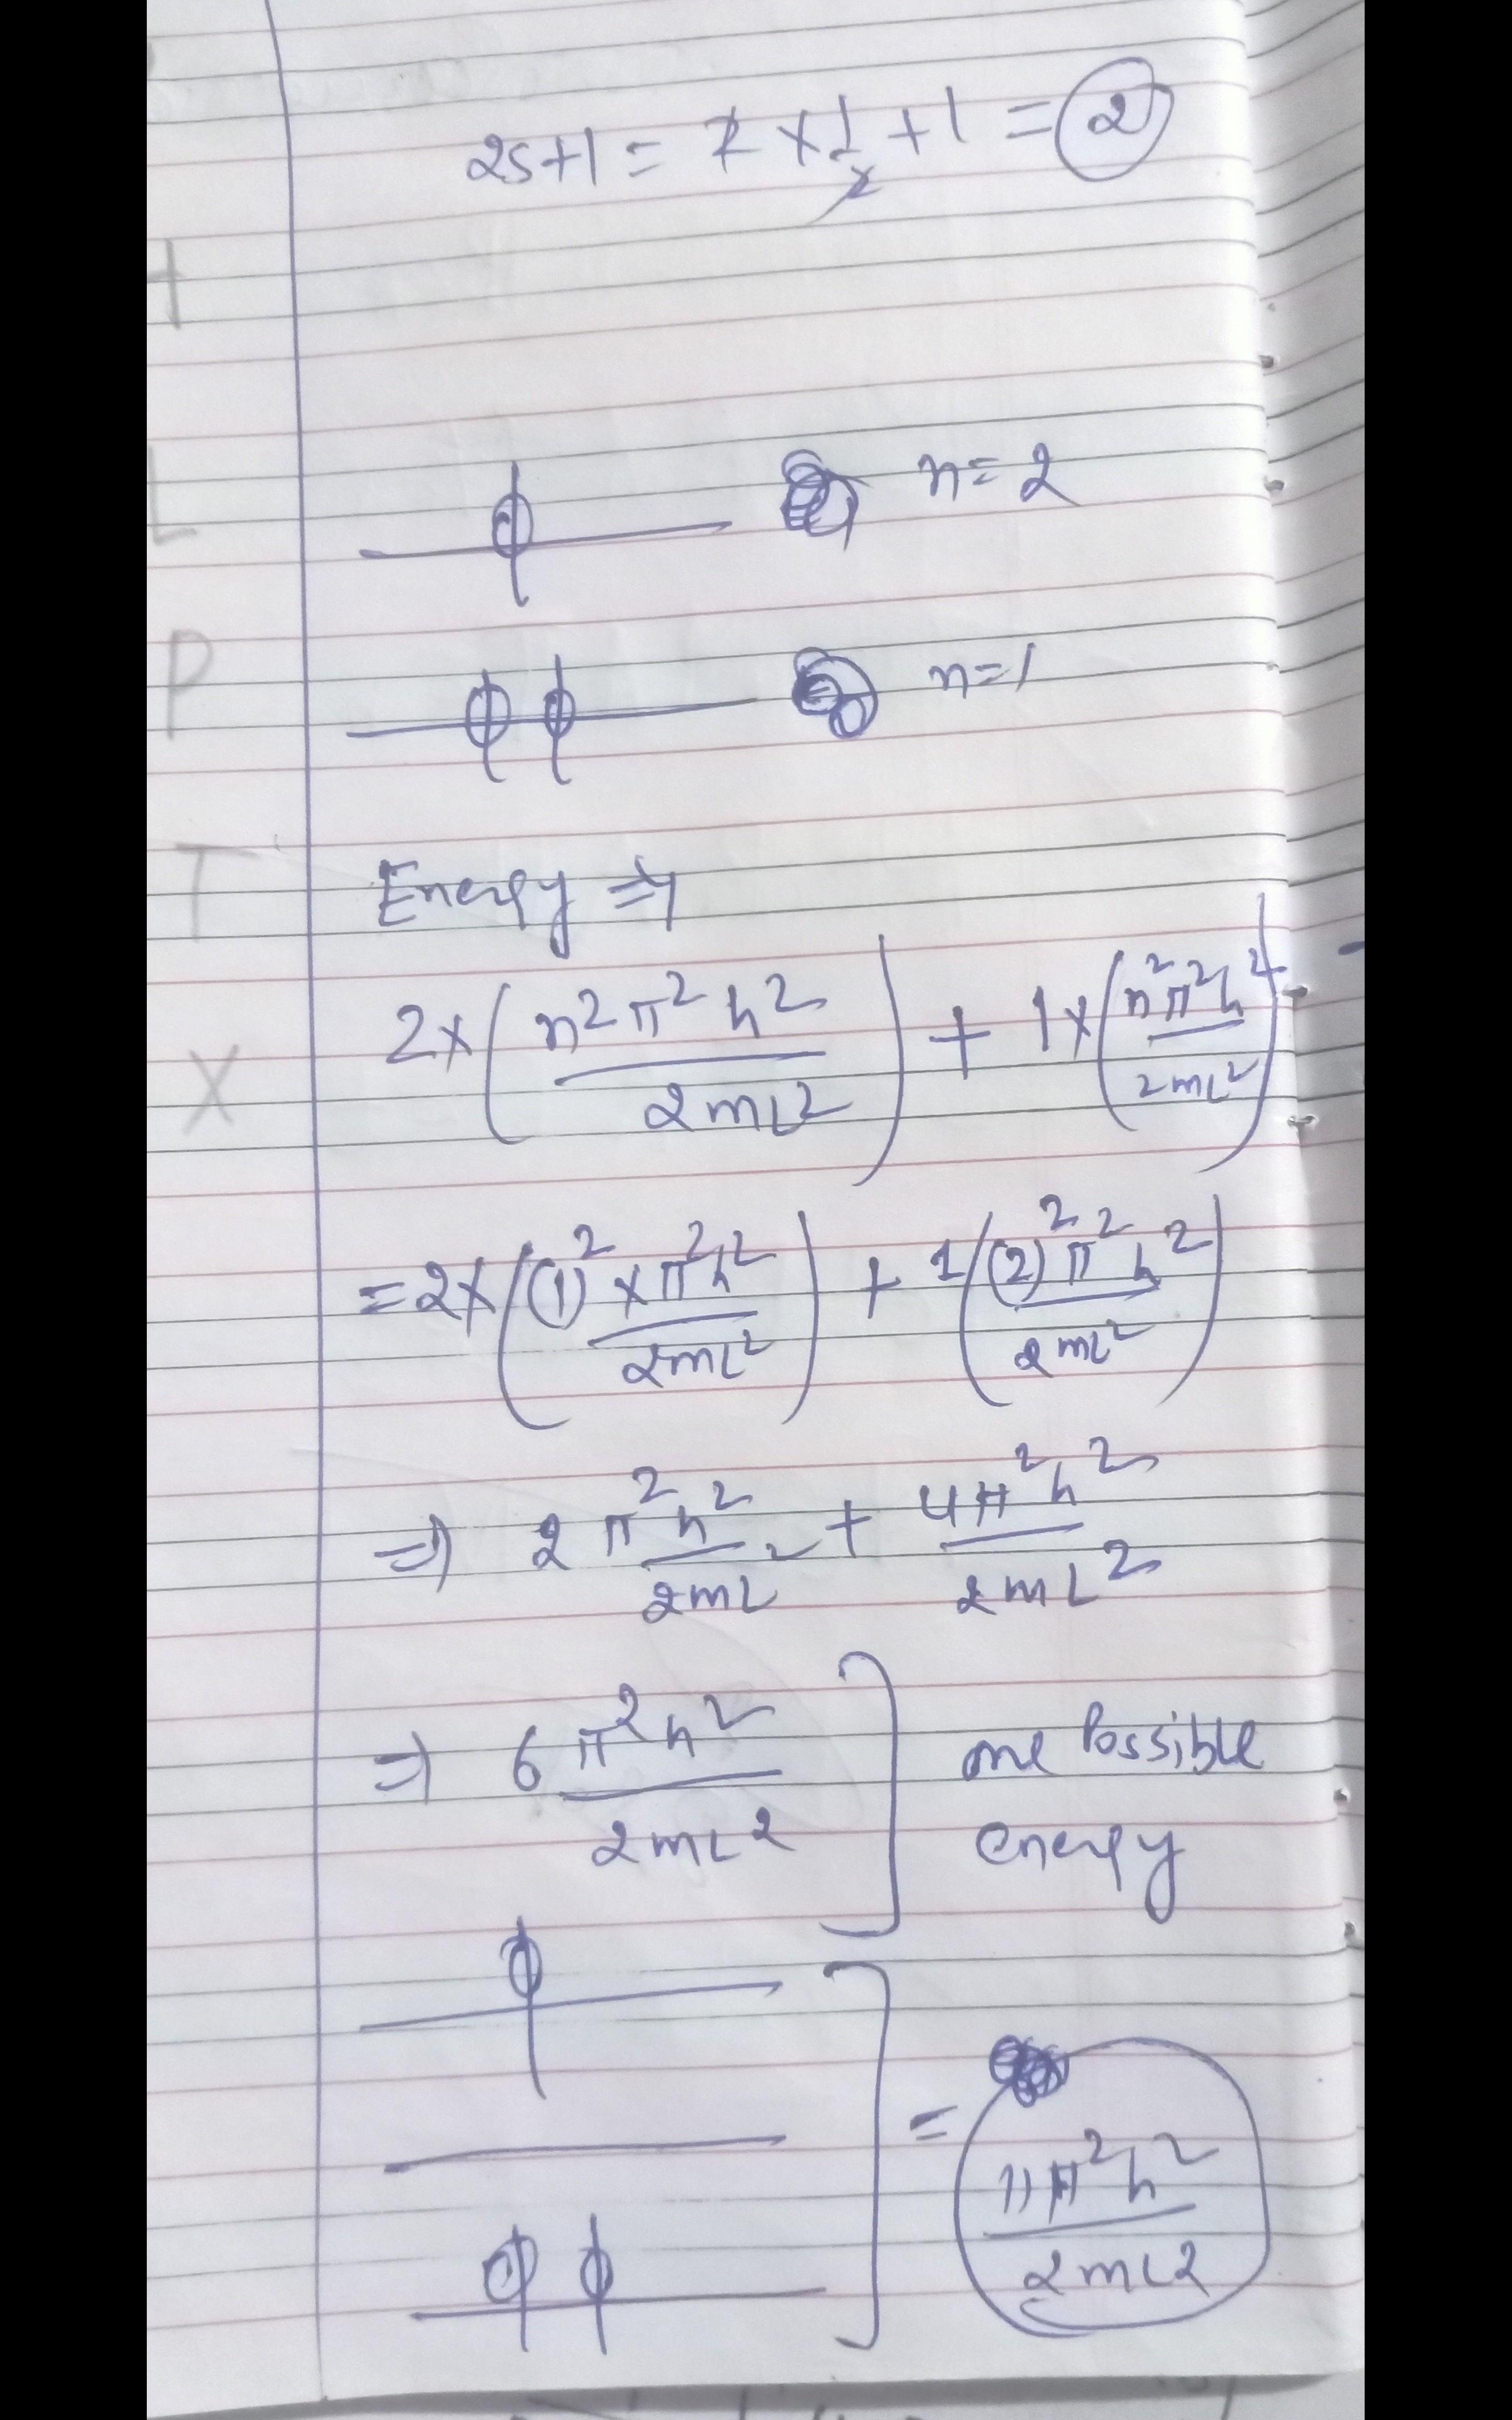 2s+1 = 2 × 1/2 + 1 = 2
n=2
n=1
Energy ⇒
2×(n²π²ħ²/2mL²) + 1×(n²π²ħ²/2mL²)
=2×((1)²×π²ħ²/2mL²) + 1((2)²π²ħ²/2mL²)
⇒ 2π²ħ²/2mL² + 4π²ħ²/2mL²
⇒ 6π²ħ²/2mL² ] one Possible
energy
= 11π²ħ²/2mL2
H
L
P
T
X